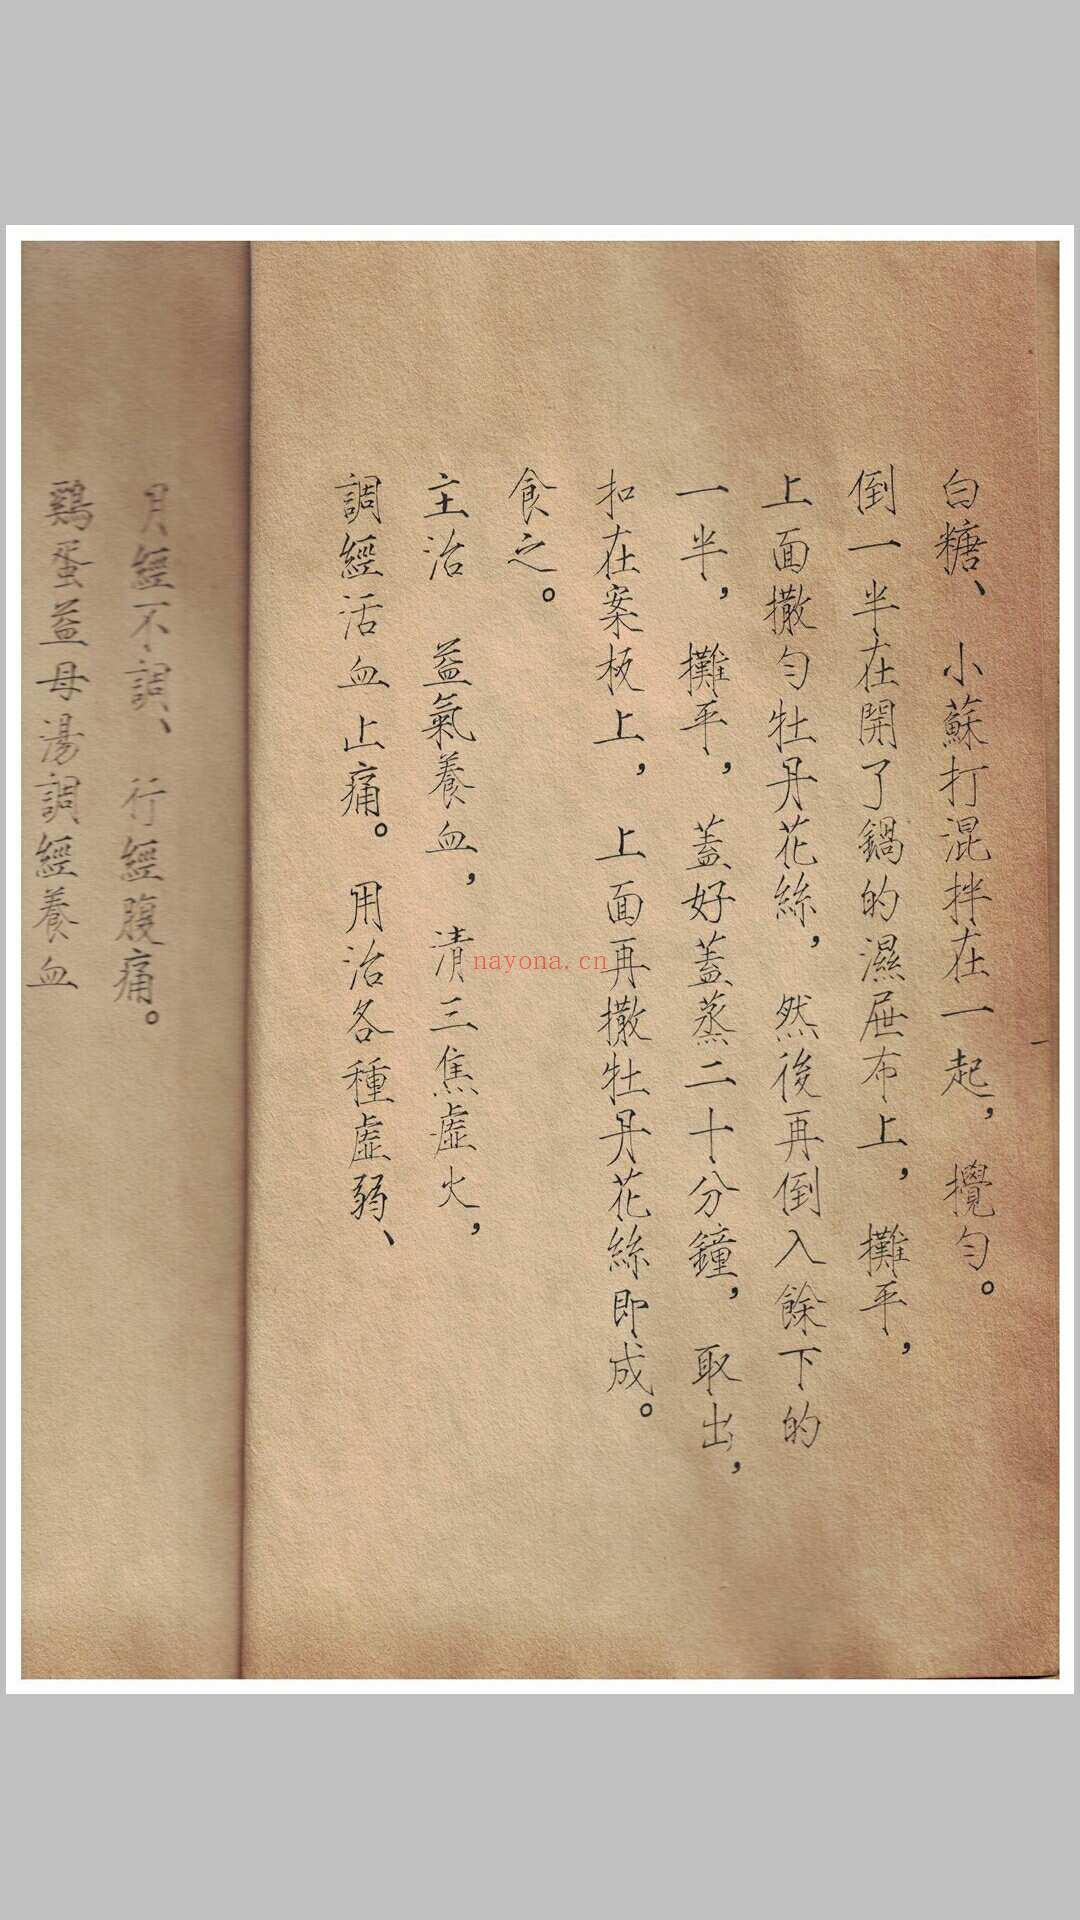 白糖、小蘇打混拌在一起，攪勻。
倒一半在開了鍋的濕屉布上，攤平，
上面撒勻牡丹花絲，然後再倒入餘下的
一半，攤平，蓋好蓋蒸二十分鐘，取出，
扣在案板上，上面再撒牡丹花絲即成。
食之。
主治 益氣養血，清三焦虛火，
調經活血止痛。用治各種虛弱、
月經不調、行經腹痛。
鷄蛋益母湯調經養血
nayona.cn